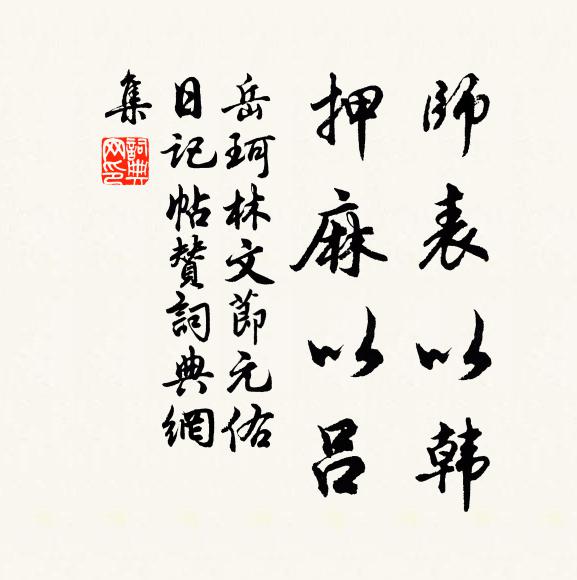 師表以韓
押麻以呂
岳珂林文節元佑
日記帖賛詞典網
集
詞典
网印